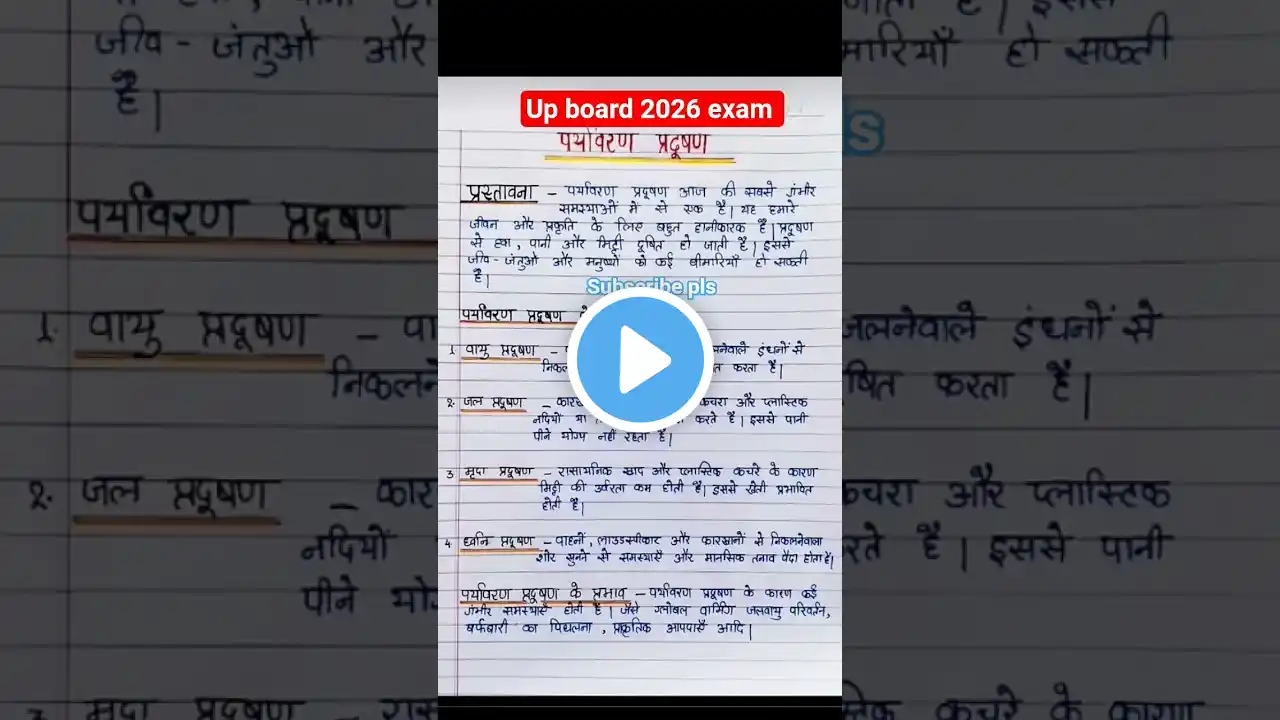 जीव - जंतुओ और
मारियाँ हो सकती
है।
पर्यावरण प्रदूषण
1. वायु प्रदूषण –
जलनेवाले इंधनों से
करता है।
2. जल प्रदूषण –
कचरा और प्लास्टिक
नदियों
है। इससे पानी
पीने
मृदा प्रदूषण –
कचरे के कारण
Up board 2026 exam
पर्यावरण प्रदूषण
प्रस्तावना – पर्यावरण प्रदूषण आज की सबसे गंभीर
समस्याओं में से एक है। यह हमारे
जीवन और प्रकृति के लिए बहुत हानीकारक है। प्रदूषण
से हवा, पानी और मिट्टी दूषित हो जाती है। इससे
जीव - जंतुओ और मनुष्यो को कई बीमारियाँ हो सकती
है।
Subscribe pls
पर्यावरण प्रदूषण
1. वायु प्रदूषण – इंधनों से
करता है।
2. जल प्रदूषण – कचरा और प्लास्टिक
नदियों करते है। इससे पानी
पीने योग्य नहीं रहता है।
3 मृदा प्रदूषण – रासायनिक खाद और प्लास्टिक कचरे के कारण
मिट्टी की उर्वरता कम होती है। इससे खेती प्रभावित
होती है।
4 ध्वनि प्रदूषण – वाहनों, लाउडस्पीकार और कारखानों से निकलनेवाला
शोर सुनने से समस्याएँ और मानसिक तनाव पैदा होता है।
पर्यावरण प्रदूषण के प्रभाव – पर्यावरण प्रदूषण के कारण कई
गंभीर समस्याएँ होती है। जैसे ग्लोबल वार्मिंग जलवायु परिवर्तन,
बर्फबारी का पिघलना, प्राकृतिक आपदाएँ आदि।